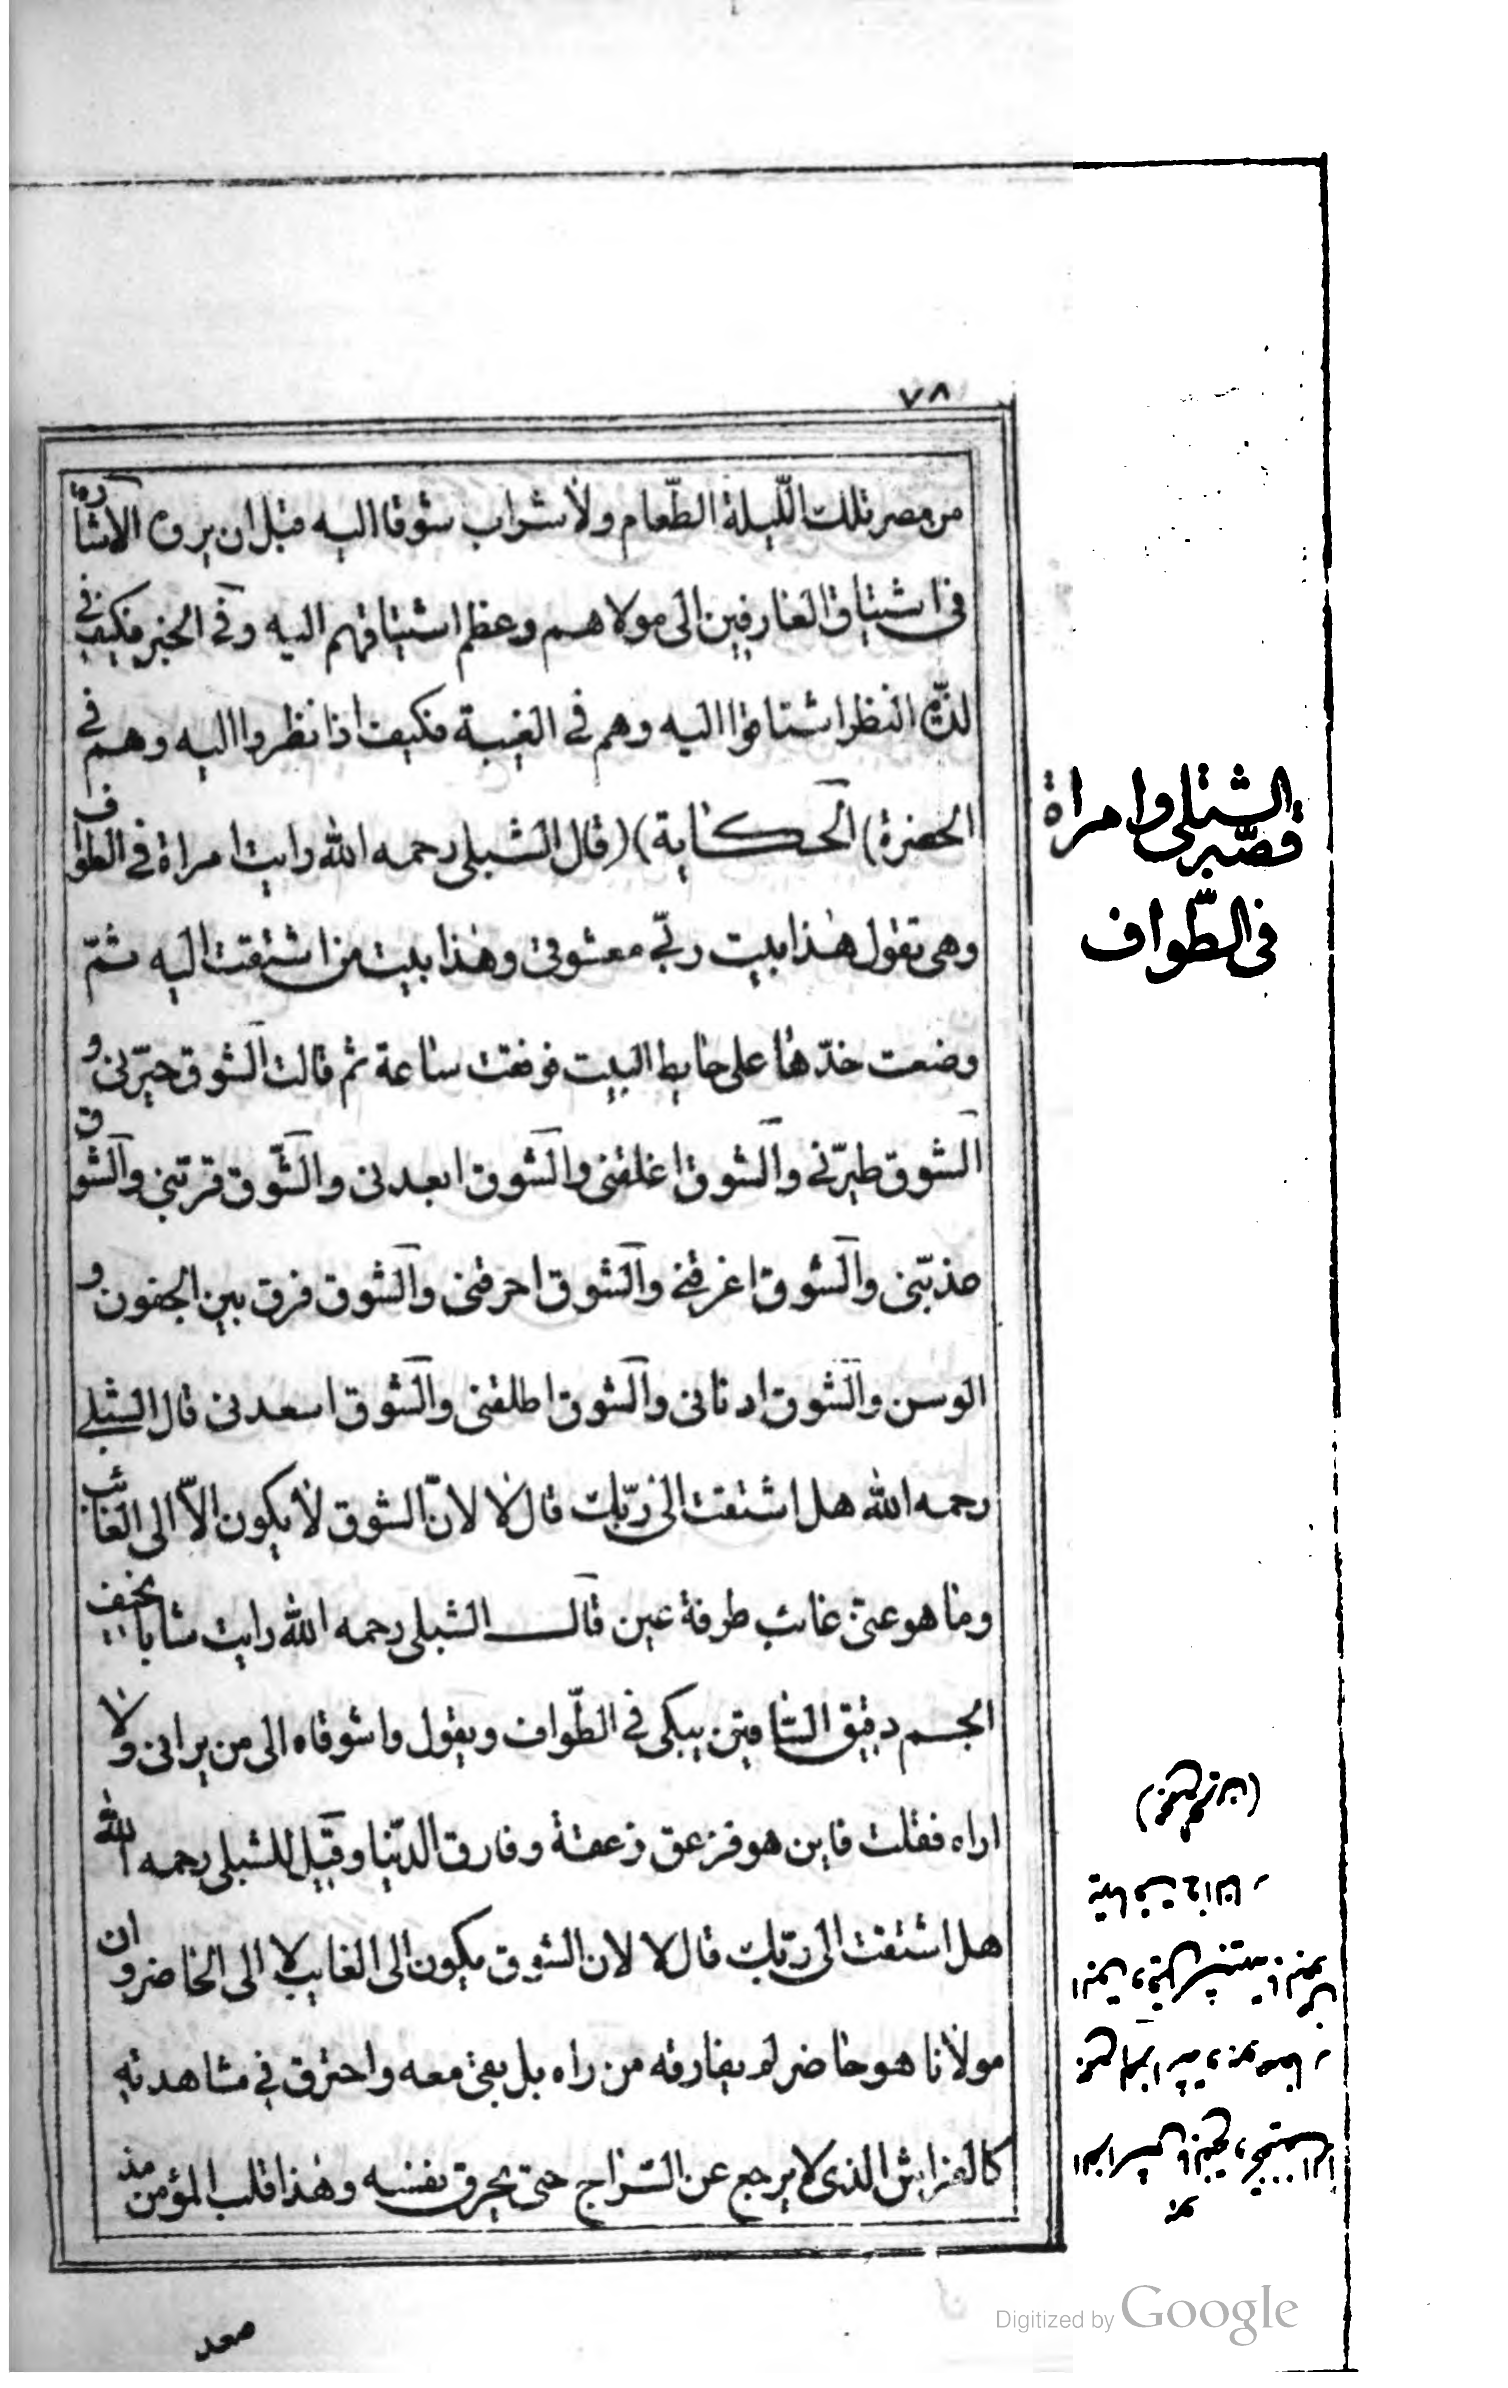 ٧٨
من مصر تلك اللّيلة الطّعام ولا شراب شوقا اليه قبل ان يروه الاشارة
فى اشتياق العارفين الى مولاهم وعظم اشتياقهم اليه وفى الخبر فكيف فى
لذّة النظر اشتاقوا اليه وهم فى الغيبة فكيف اذا نظروا اليه وهم فى
الحضرة) الحكاية) (قال الشبلى رحمه الله رايت امراة فى الطواف
وهى تقول هذا بيت ربّى معشوقى وهذا بيت من اشتقت اليه ثمّ
وضعت خدّها على حايط البيت فوقفت ساعة ثم قالت الشوق حيّرنى و
الشوق طيرّنى والشوق اغلقنى والشوق ابعدنى والشّوق قرّبنى والشوق
عذبّنى والشوق اغرقنى والشوق احرقنى والشوق فرق بين الجفون و
الوسن والشوق ادنانى والشوق اطلقنى والشوق اسعدنى قال الشبلى
رحمه الله هل اشتقت الى ربّك قال لا لانّ الشوق لا يكون الاّ الى الغائب
وما هو عنى غائب طرفة عين قال الشبلى رحمه الله رايت شابا نحيف
الجسم دقيق الساقين يبكى فى الطّواف ويقول واشوقاه الى من يرانى ولا
اراه فقلت فاين هو فزعق زعقة وفارق الدّنيا وقيل للشبلى رحمه الله
هل اشتقت الى ربّك قال لا لان الشوق يكون الى الغايب لا الى الحاضر وان
مولانا هو حاضر لم يفارقه من راه بل بقى معه واحترق فى مشاهدته
كالفراش الذى لا يرجع عن السّراج حتى يحرق نفسه وهذا قلب المؤمن مذ
صعد
قصّة الشبلى وامراة
فى الطّواف